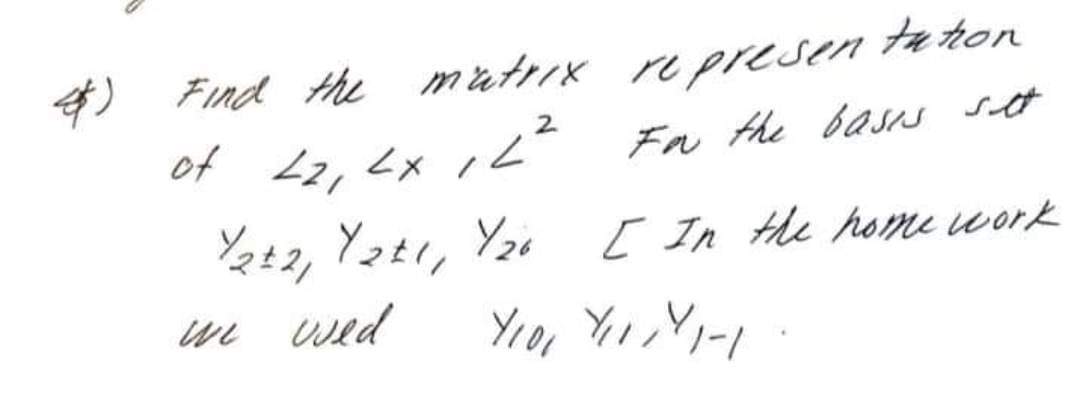 4) Find the matrix representation
of Lz, Lx, L² For the basis set
Y₂±₂, Y₂±₁, Y₂₀ [ In the homework
we used Y₁₀, Y₁₁, Y₁₋₁.